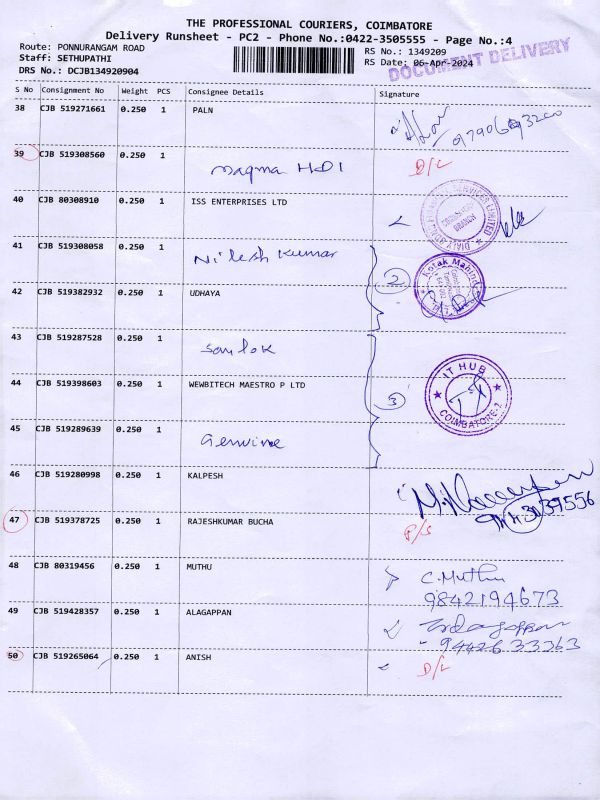 THE PROFESSIONAL COURIERS, COIMBATORE
Delivery Runsheet - PC2 - Phone No.:0422-3505555 - Page No.:4
Route: PONNURANGAM ROAD
RS No.: 1349209
Staff: SETHUPATHI
RS Date: 06-Apr-2024
DOCUMENT DELIVERY
DRS No.: DCJB134920904
S No Consignment No Weight PCS Consignee Details Signature
38 CJB 519271661 0.250 1 PALN
39 CJB 519308560 0.250 1 D/L
magma HDI
40 CJB 80308910 0.250 1 ISS ENTERPRISES LTD
41 CJB 519308058 0.250 1
Nilesh Kumar
Kotak Mahindra
2
42 CJB 519382932 0.250 1 UDHAYA
43 CJB 519287528 0.250 1
IT HUB
COIMBATORE-2
44 CJB 519398603 0.250 1 WEWBITECH MAESTRO P LTD
3
45 CJB 519289639 0.250 1
Genuine
46 CJB 519280998 0.250 1 KALPESH
47 CJB 519378725 0.250 1 RAJESHKUMAR BUCHA
48 CJB 80319456 0.250 1 MUTHU C. Muthu
9842194673
49 CJB 519428357 0.250 1 ALAGAPPAN
9442633363
50 CJB 519265064 0.250 1 ANISH D/L